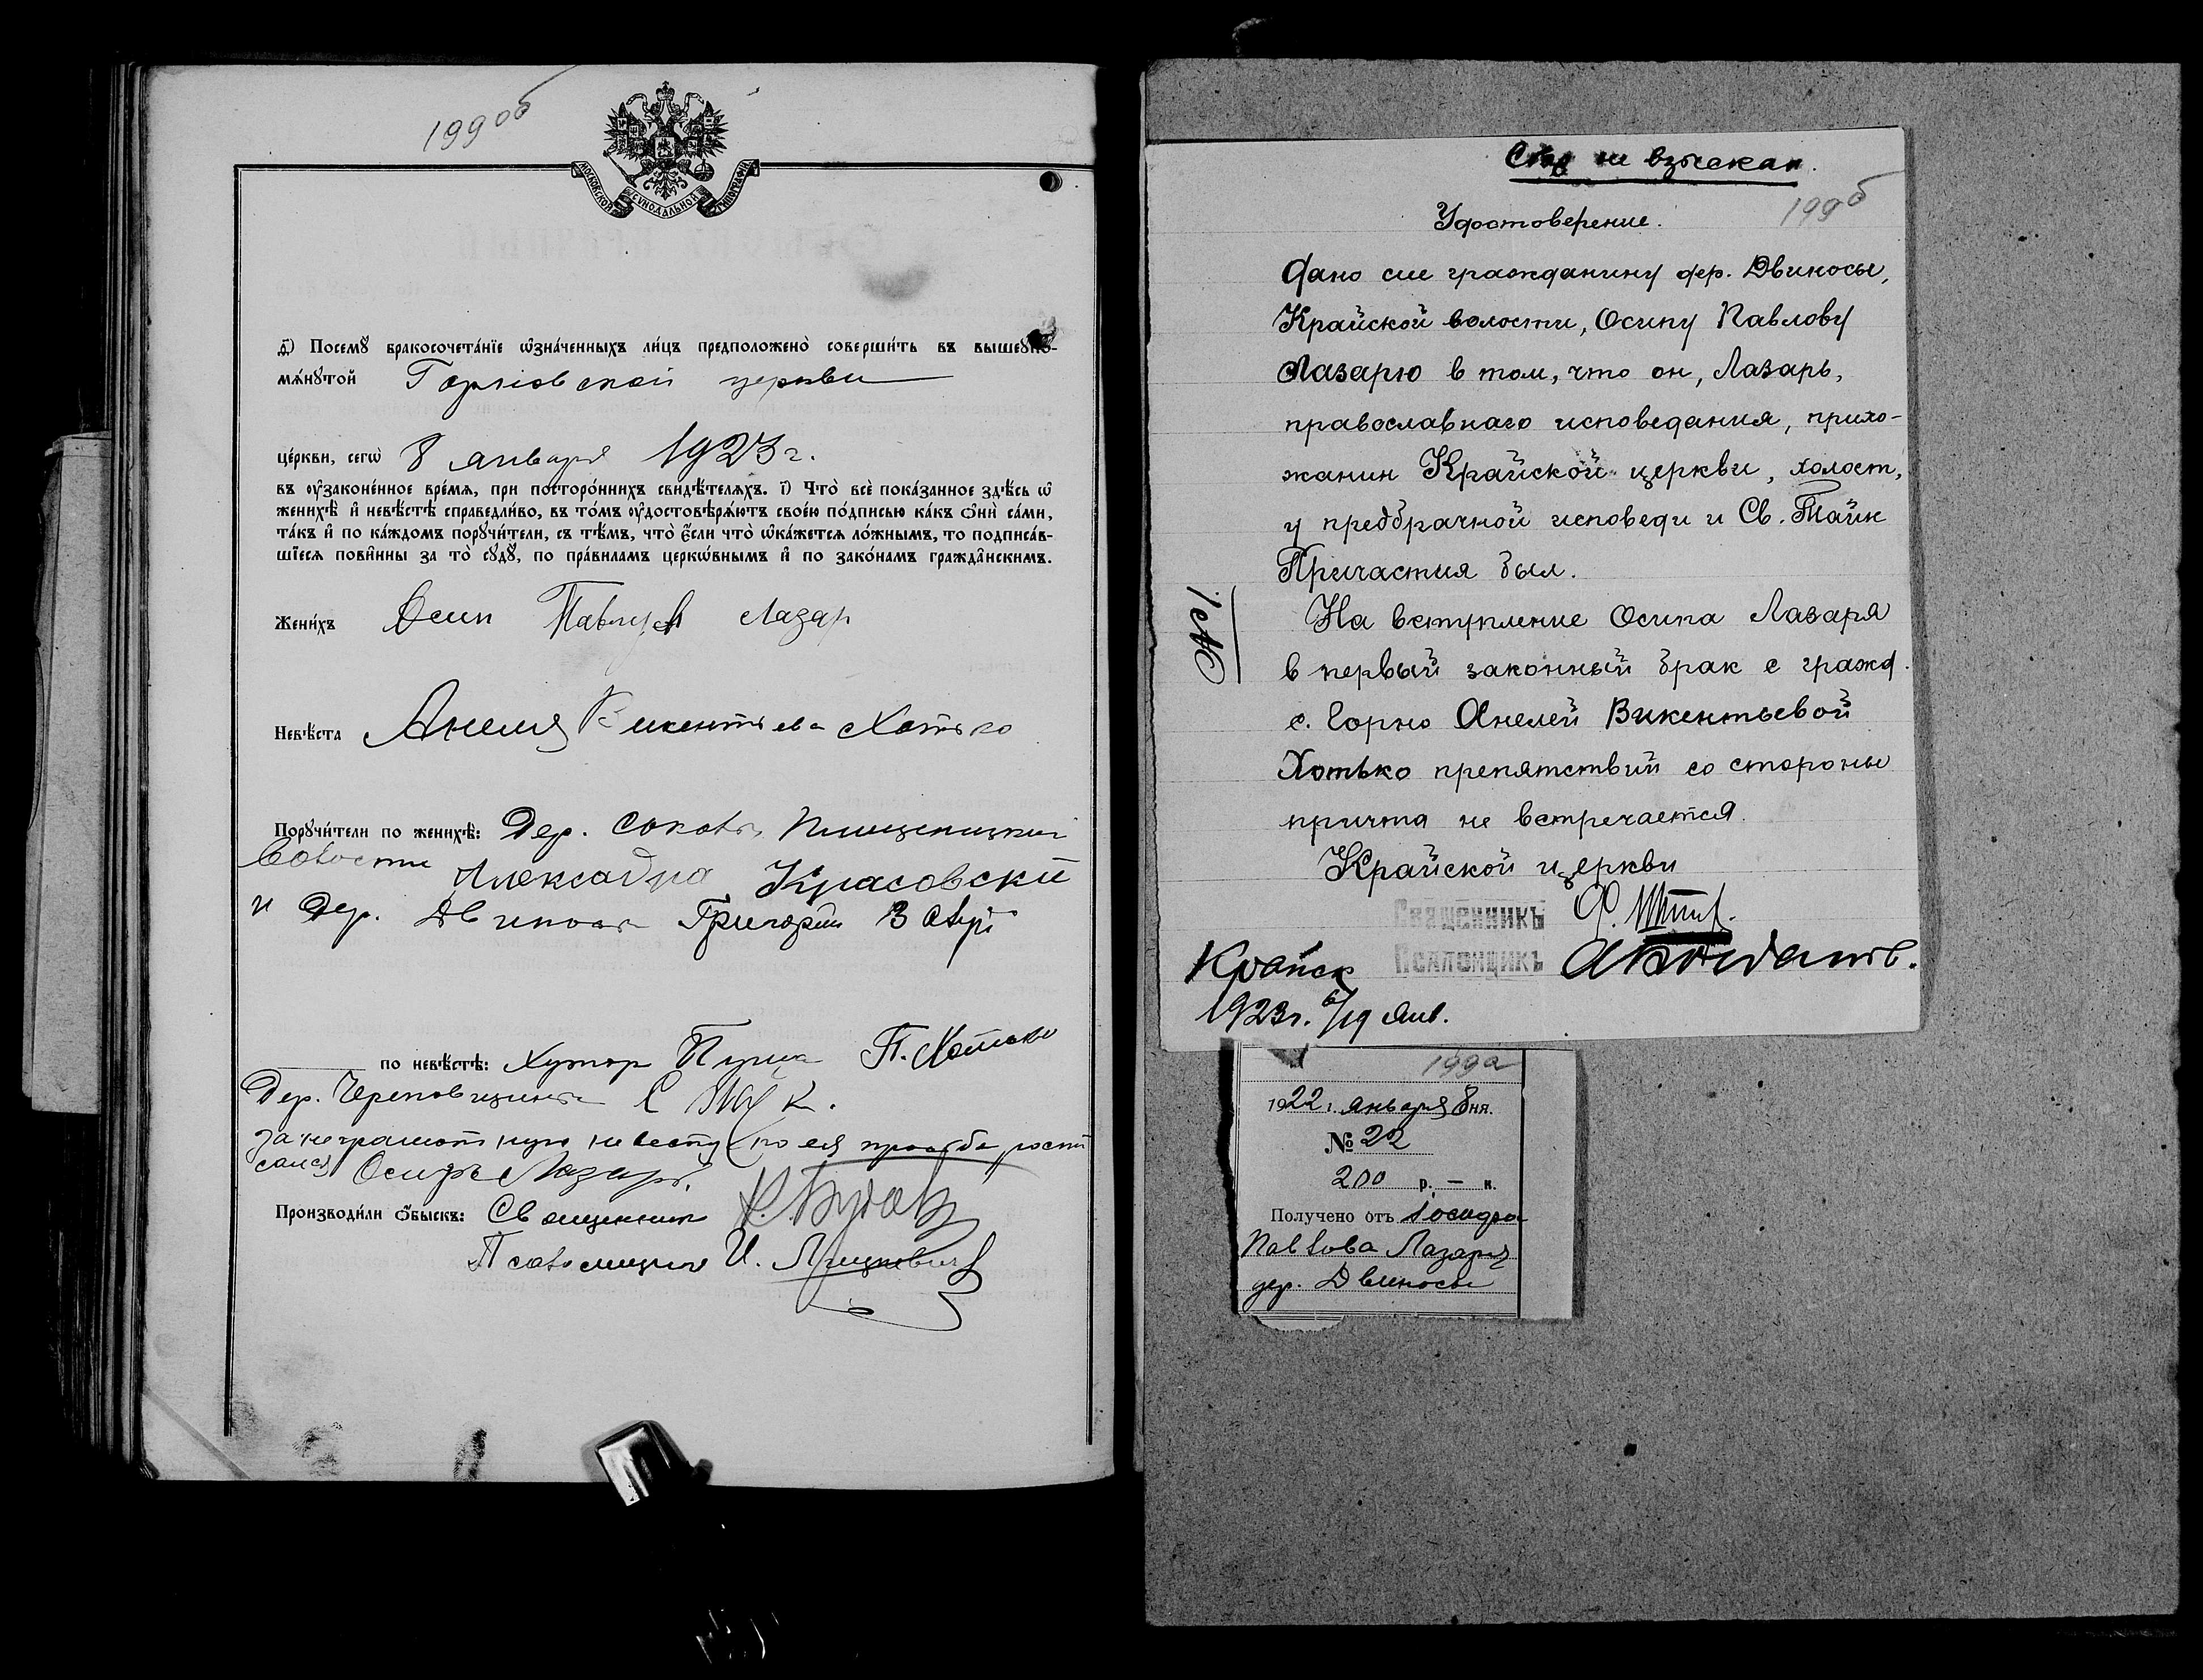 199об
МОСКОВСКОЙ СѴНОДАЛЬНОЙ ТИПОГРАФІИ
д҃) Посемꙋ̀ бракосочета́нїе ѡ҆зна́ченныхъ ли́цъ предположено̀ соверши́ть въ вышеꙋпо-
мѧ́нꙋтой Горновской церкви
це́ркви, сегѡ̀ 8 января 1923 г.
въ ᲂу҆законе́нное вре́мѧ, при посторо́ннихъ свидѣ́телѧхъ. і҃) Что̀ всѐ пока́занное здѣ́сь ѡ҆
женихѣ̀ и҆ невѣ́стѣ справедли́во, въ то́мъ ᲂу҆достовѣрѧ́ютъ свое́ю по́дписью ка́къ ѻ҆нѝ са́ми,
та́къ и҆ по ка́ждомъ порꙋчи́тели, съ тѣ́мъ, что̀ є҆́сли что̀ ѡ҆ка́жетсѧ ло́жнымъ, то подписа́в-
шїесѧ пови́нны за то̀ сꙋдꙋ̀, по пра́виламъ церкѡ́внымъ и҆ по зако́намъ гражда́нскимъ.
Жени́хъ Осип Павлов Лазар
Невѣ́ста Анеля Викентьева Хотько
Порꙋчи́тели по женихѣ̀: Дер. Соколы Плещеницкий
Волости Александра Красовский
и Дер. Двиносы Григорий
по невѣ́стѣ: Хутор П. Хотько
Дер.
за неграмотную невесту по ея просьбе роспи
сался Осипъ Лазарь.
Производи́ли ѻ҆́быскъ: Священник
Псаломщик И.
не взыскан.
199б
Удостоверение.
Дано сие гражданину дер. Двиносы,
Крайской волости, Осипу Павлову
Лазарю в том, что он, Лазарь,
православнаго исповедания, прихо-
жанин Крайской церкви, холост,
у предбрачной исповеди и Св. Тайн
Причастия был.
На вступление Осипа Лазаря
в первый законный брак с гражд.
с. Горно Анелей Викентьевой
Хотько препятствий со стороны
причта не встречается.
Крайской церкви
Священникъ
Псаломщикъ
Крайск
1923г. 6/19 янв.
199а
1922 г. января 8 дня.
№ 22
200 р. — к.
Получено отъ Іосифа
Павлова Лазаря
дер. Двиносы